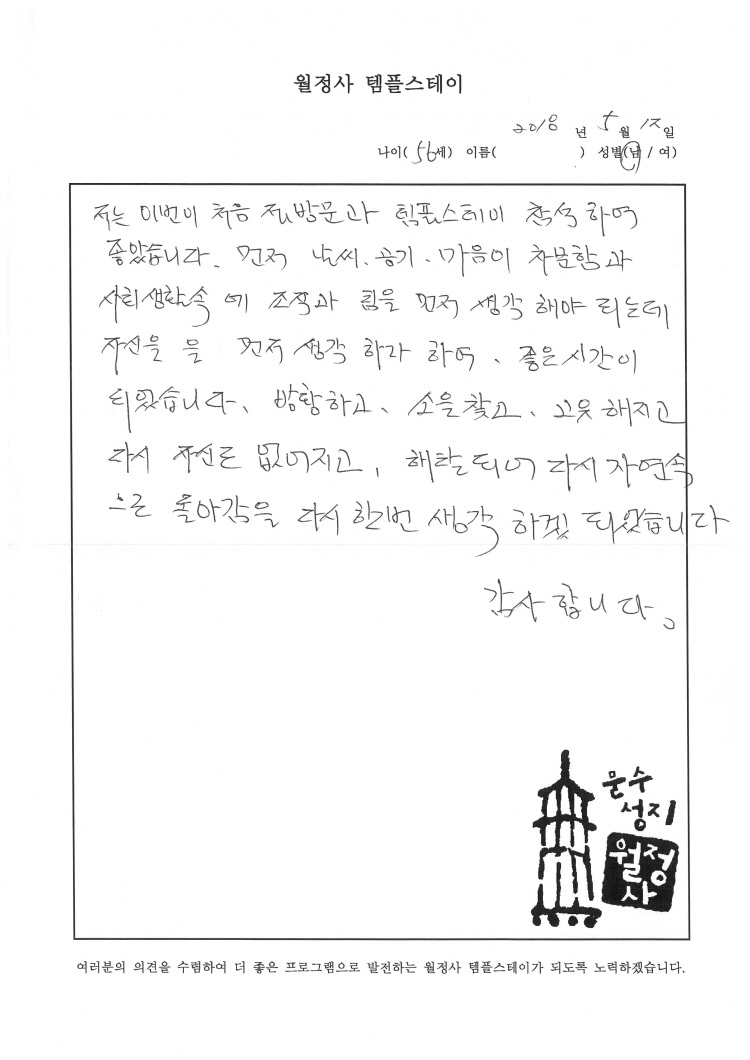 월정사 템플스테이
2018 년 5 월 12 일
나이( 56 세) 이름( ) 성별(남 / 여)
저는 이번이 처음 방문과 템플스테이 참석 하여
좋았습니다. 먼저 날씨. 공기. 마음이 차분함과
사회생활속 에 조직과 팀을 먼저 생각 해야 되는데
자신을 을 먼저 생각 하자 하여, 좋은 시간이
되었습니다. 방황하고, 소을 찾고, 해지고
다시 자신도 없어지고, 해탈 되어 다시 자연속
으로 돌아감을 다시 한번 생각 하겠 되었습니다
감사 합니다.
문수
성지
월정
사
여러분의 의견을 수렴하여 더 좋은 프로그램으로 발전하는 월정사 템플스테이가 되도록 노력하겠습니다.